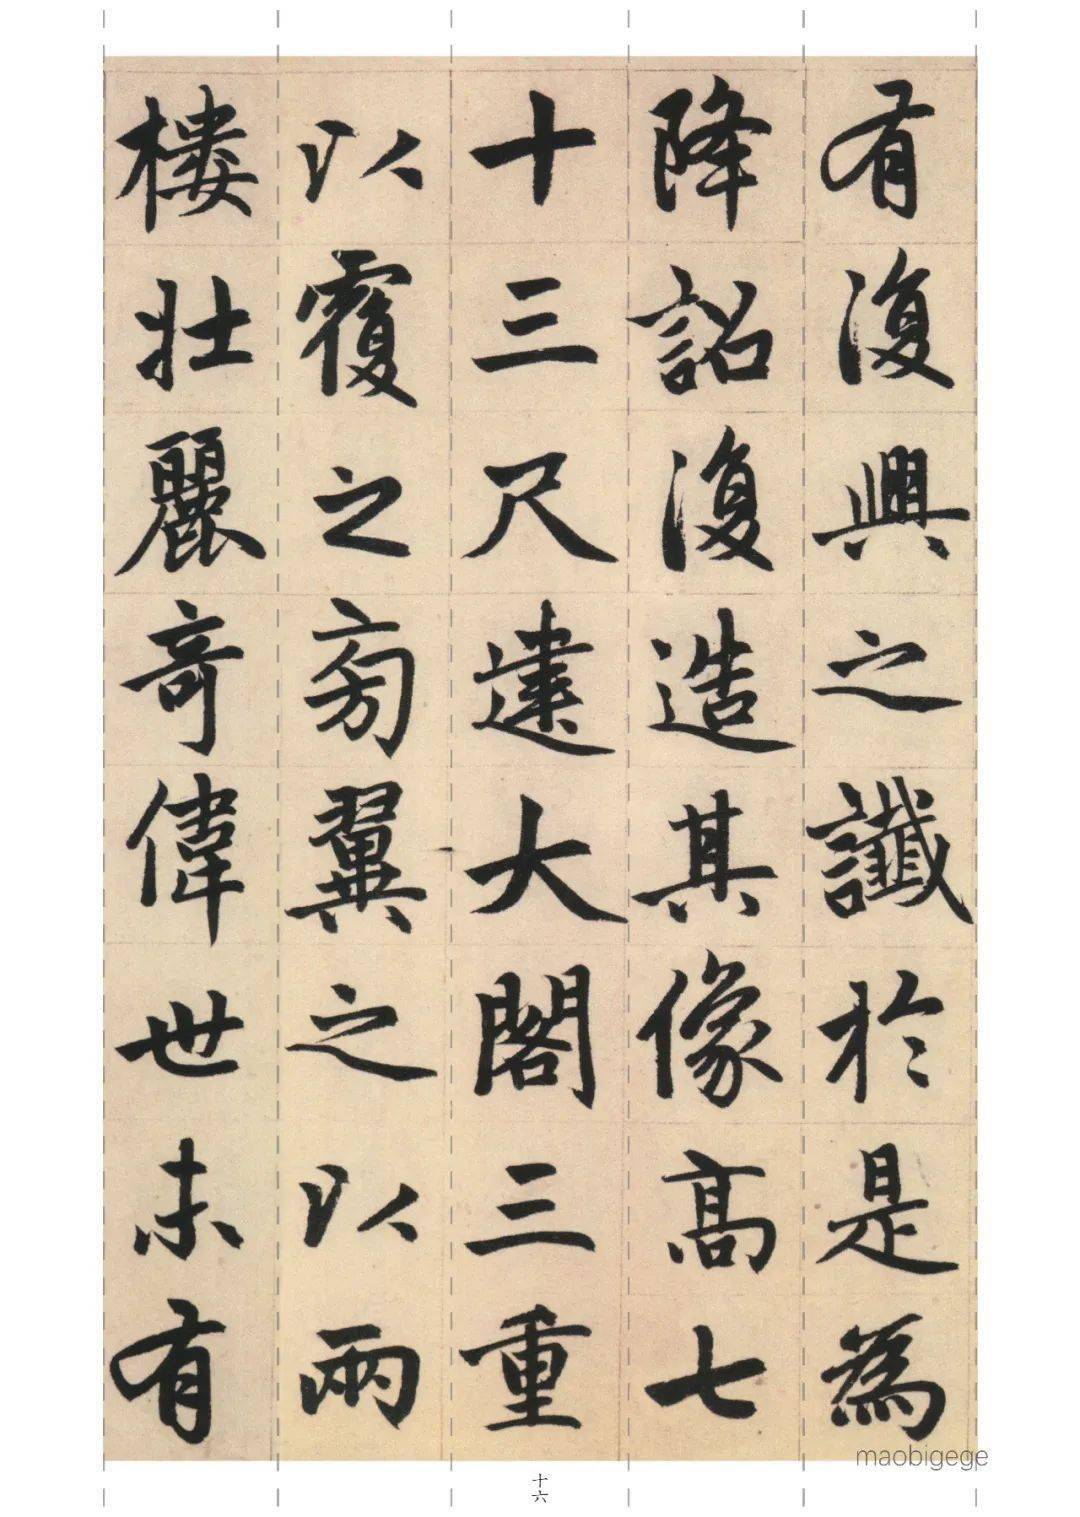 有復興之讖於是為
降詔復造其像高七
十三尺建大閣三重
以覆之旁翼之以兩
樓壯麗奇偉世未有
maobigege
十六